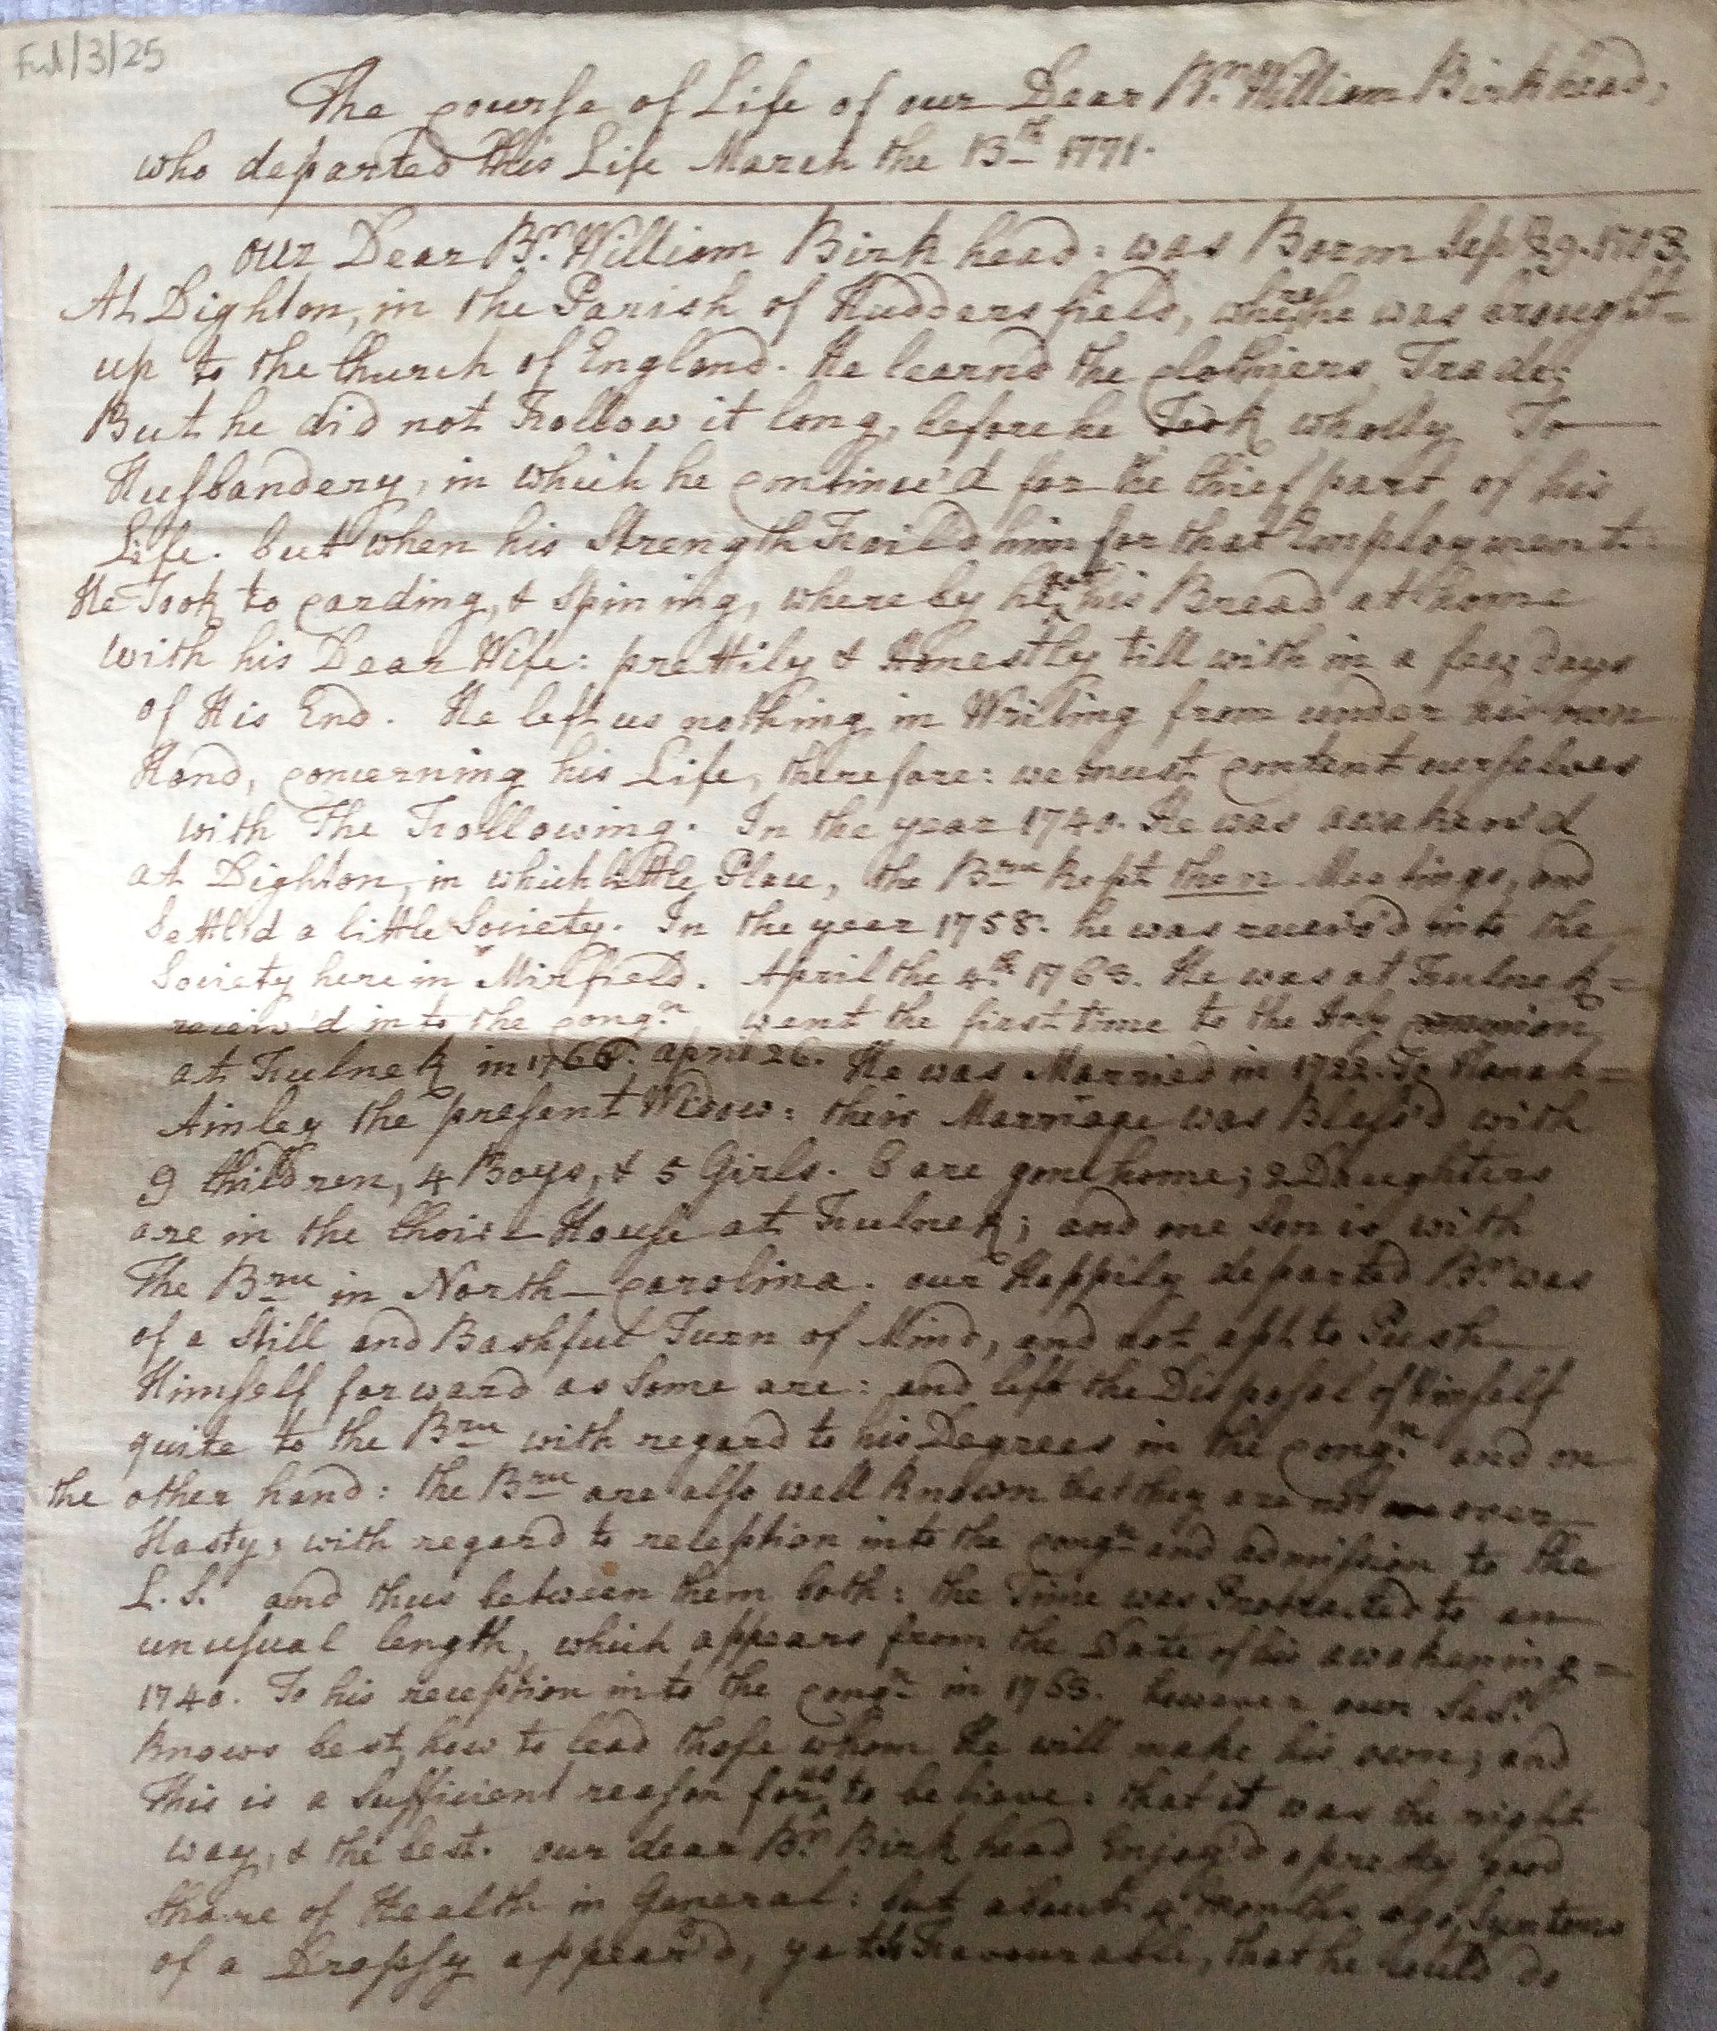 Ful/3/25
The course of Life of our Dear Br. William Birkhead,
who departed this Life March the 13th 1771.
our Dear Br. William Birkhead: was Born Sep 29. 1703
At Dighton, in the Parish of Huddersfield, where he was brought=
up to the Church of England. He learnd the clothiers Trade;
But he did not Follow it long, before he Took wholly To
Husbandery, in which he continue'd for the Chief part of his
Life. but when his Strength Fail'd him for that Employment:
He Took to carding, & Spining, where by he his Bread at home
with his Dear Wife: prettily & Honestly till with in a few days
of His End. He left us nothing in Writing from under his own
Hand, concerning his Life, therefore: we must content ourselves
with The Following. In the year 1740. He was awaken'd
at Dighton, in which little Place, the Brn kept then Meetings, and
Settl'd a little Society. In the year 1758. he was receiv'd into the
Society here in Mirfield. April the 4th 1763. He was at Fulnek=
receiv'd in to the congn. went the first time to the Holy
at Fulnek in 1766. april 26. He was Married in 1722. To Hanah=
Ainley the present Widow: their Marriage was Bless'd with
9 Children, 4 Boys, & 5 Girls. 6 are gone home; 2 Daughters
are in the Choir-House at Fulnek; and one Son is with
The Brn in North-carolina. our Happily departed Br. was
of a Still and Bashful Turn of Mind, and not apt to Push
Himself forward as Some are: and left the Disposal of Himself
quite to the Brn with regard to his Degrees in the congn. and on
the other hand: the Brn are also well known that they are not over
Hasty; with regard to reception into the congn and admission to the
L.S. and thus between them both: the Time was Protracted to an
unusual length, which appears from the Date of his awakening=
1740. To his reception in to the congn in 1763. however our Savr.
knows best how to lead those whom He will make his own; and
This is a Sufficient reason for us to believe: that it was the right
way, & the best. our dear Br. Birkhead Enjoy'd a pretty good
Share of Health in General: but about months ago Symtoms
of a Dropsy appear'd, yet Favourable, that he could do